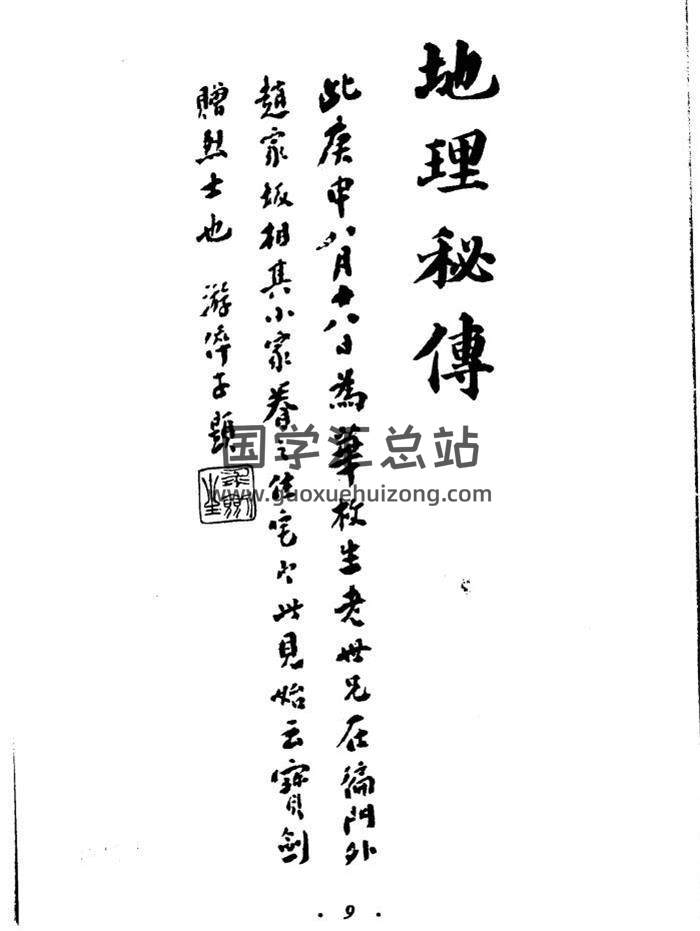 地理秘傳
此庚申八月十八日為華枚生老世兄在徧門外
趙家坂相其小家眷之住宅占此見始云寶劍
贈烈士也 游倅子題
国学汇总站
www.guoxuehuizong.com
· 9 ·